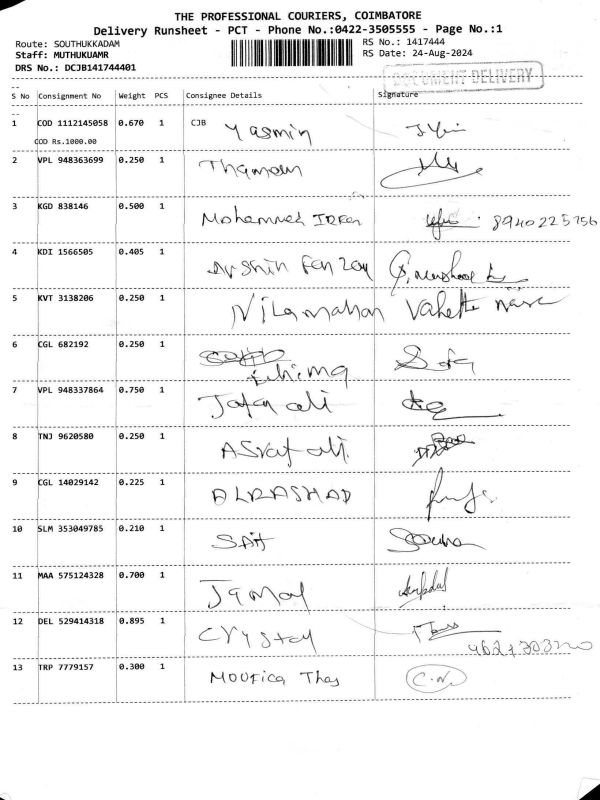 THE PROFESSIONAL COURIERS, COIMBATORE
Delivery Runsheet - PCT - Phone No.:0422-3505555 - Page No.:1
Route: SOUTHUKKADAM RS No.: 1417444
Staff: MUTHUKUAMR RS Date: 24-Aug-2024
DRS No.: DCJB141744401
DOCUMENT DELIVERY
S No Consignment No Weight PCS Consignee Details Signature
1 COD 1112145058 0.670 1 CJB Yasmin
COD Rs.1000.00
2 VPL 948363699 0.250 1
3 KGD 838146 0.500 1 Mohammed IRFan 8940225756
4 KDI 1566505 0.405 1 Arshin
5 KVT 3138206 0.250 1 Nilamahan
6 CGL 682192 0.250 1
7 VPL 948337864 0.750 1 Jafar ali
8 TNJ 9620580 0.250 1 ASraf ali.
9 CGL 14029142 0.225 1 ALRASHAD
10 SLM 353049785 0.210 1 SAit
11 MAA 575124328 0.700 1 Jamal
12 DEL 529414318 0.895 1 Crystal
13 TRP 7779157 0.300 1 MOUFica Thas C.N.